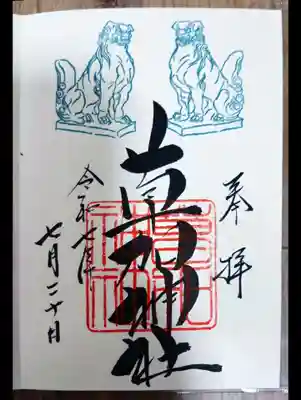 奉拝
草加神社
令和七年
七月二十日